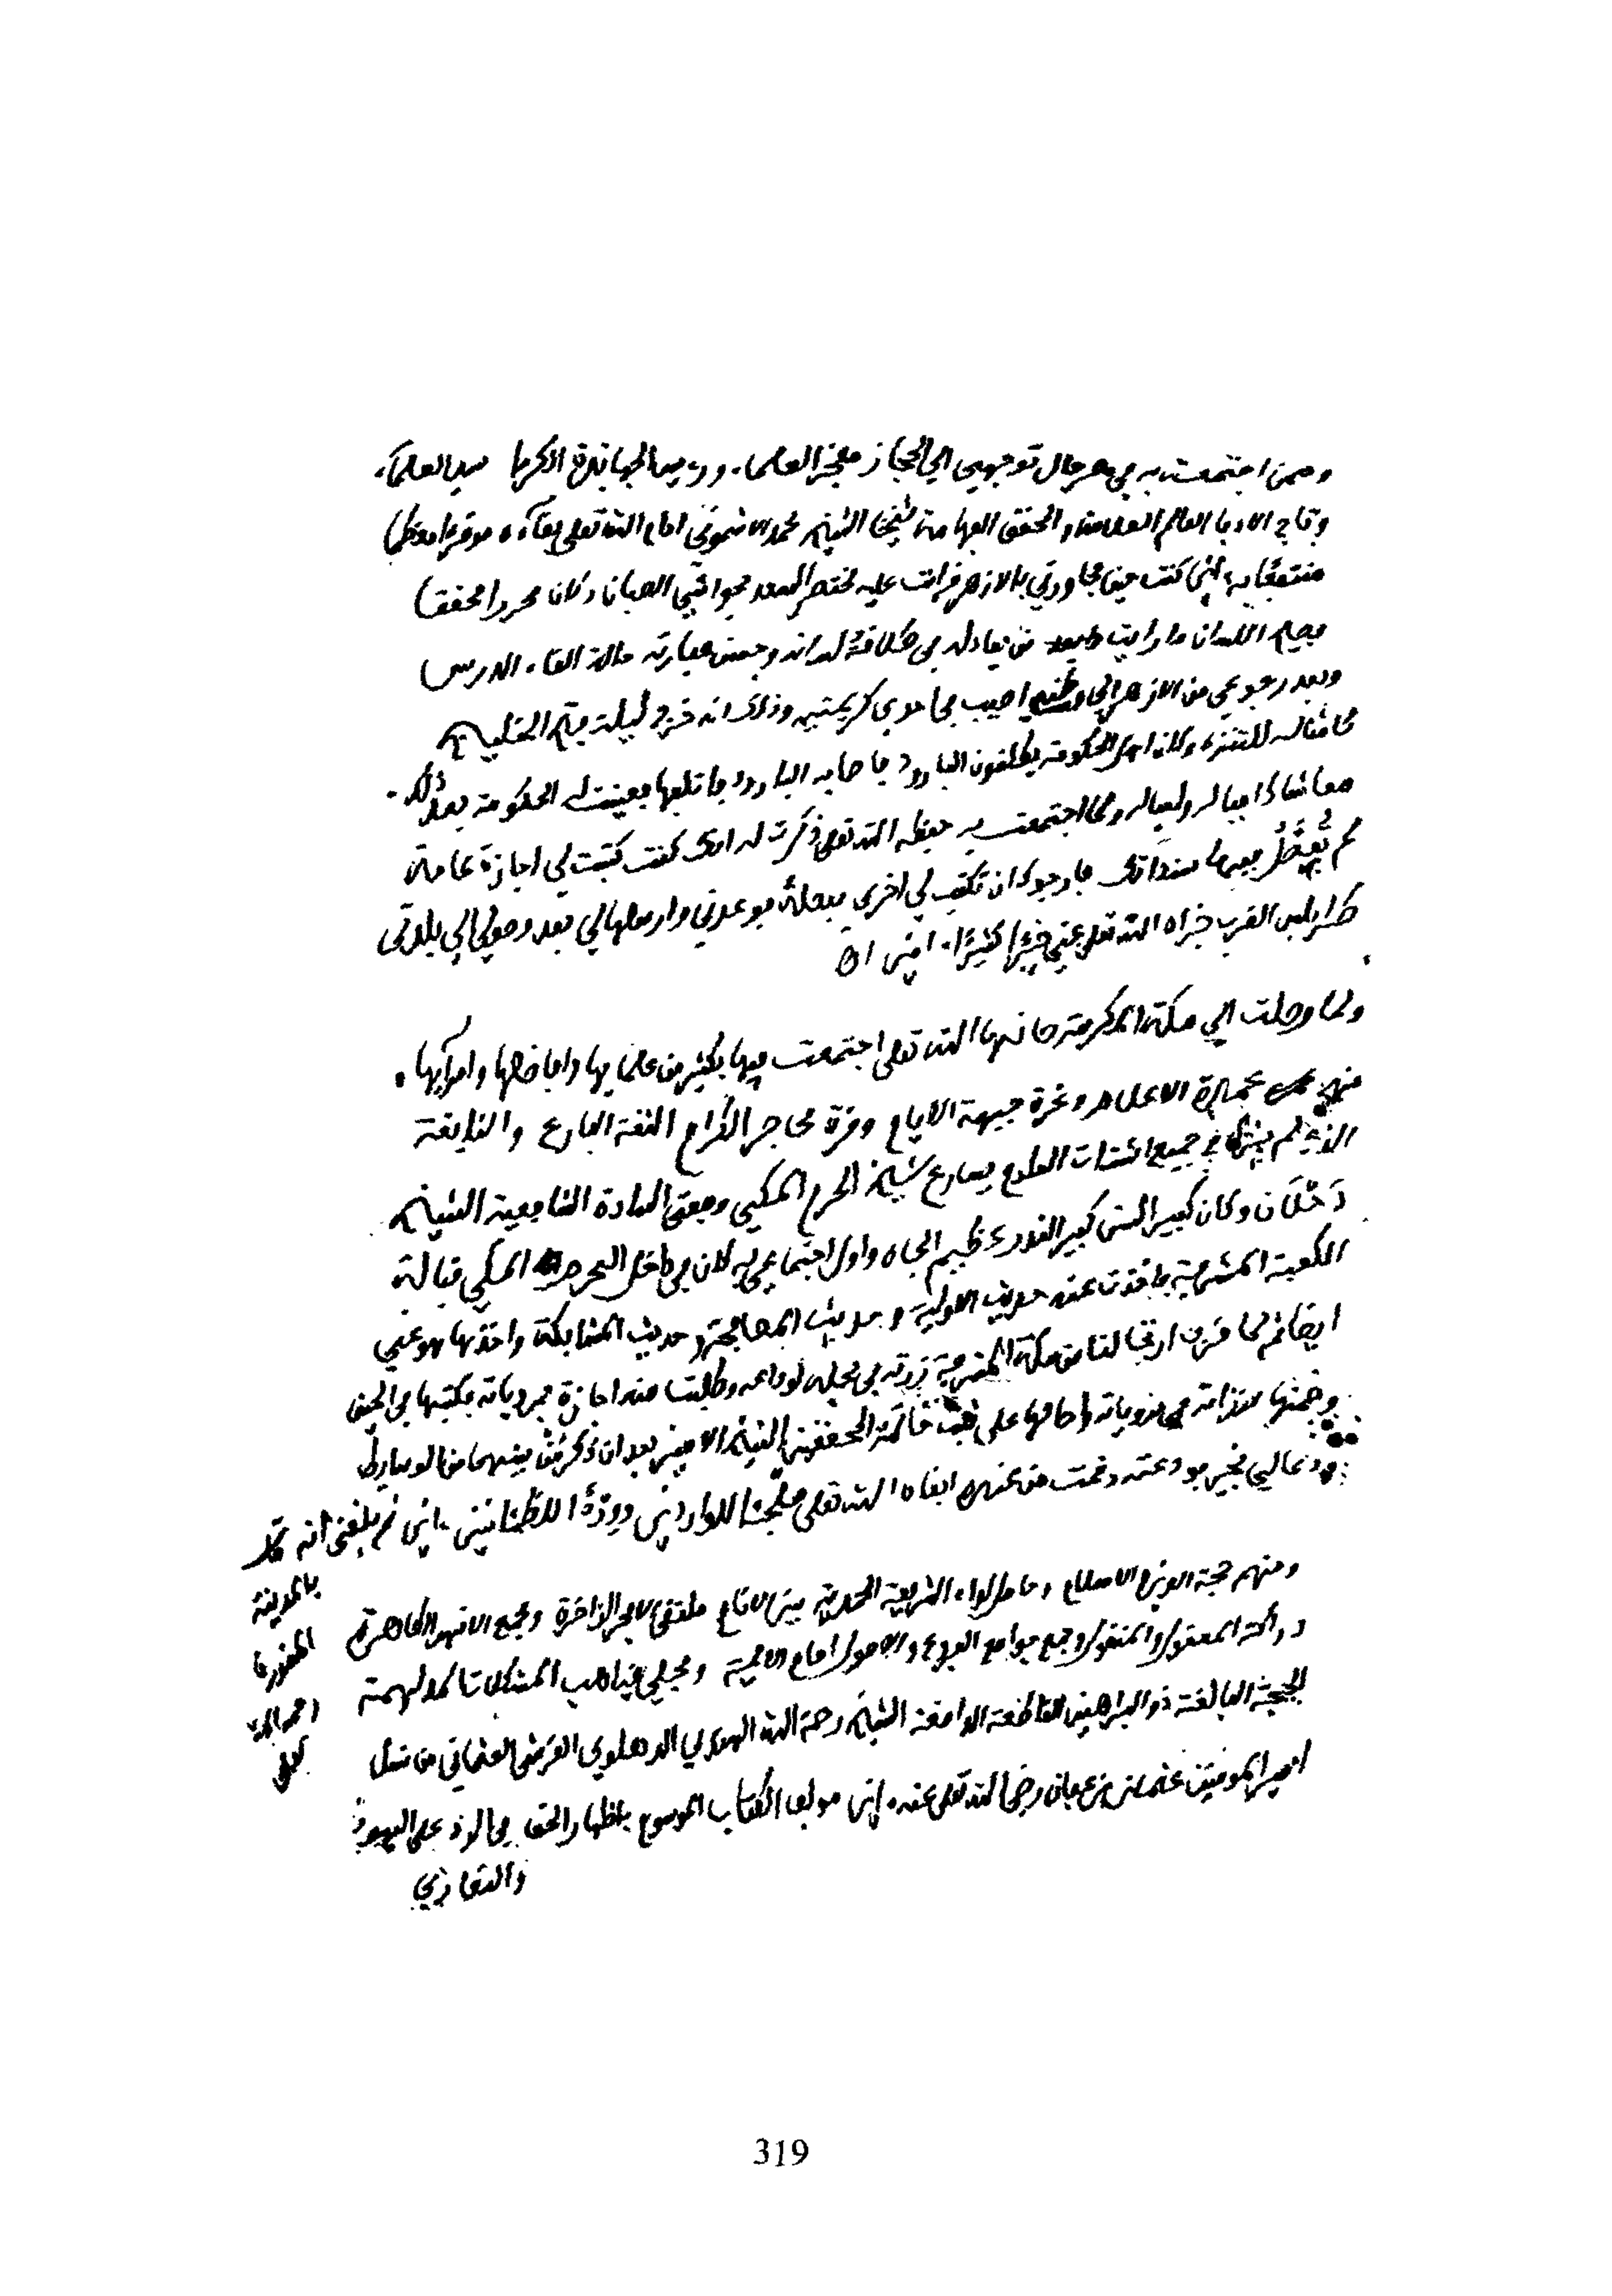 وممن اجتمعت به في مصر حال توجهي الى الحجاز مفخر العلماء ورءيس الجهابذة الكرما سيد العلماء
وتاج الادبا العالم العلامة والمحقق الفهامة شيخنا الشيخ محمد الاشموني ادام الله تعلى بقاءه موقرا معظما
منتفعًا به ءامين كنت حين مجاورتي بالازهر قرات عليه مختصر السعد بحواشي الصبان وكان محررا محققا
فصيح اللسان ما رايت من يعادله في طلاقة لسانه وحسن عبارته حالة القاء الدرس
وبعد رجوعي من الازهر الى وطني اصيب في احدى كريمتيه وذلك انه خرج ليلة فتح الخليج
كامثاله للتنزه وكان اهل الحكومة يطلقون البارود فاصابه البارود فاتلفها فعينت له الحكومة بعد ذلك
معاشا دا له ولعياله ولما اجتمعت به حفظه الله تعلى ذكرت له انك كنت كتبت لي اجازة عامة
لم تُفصِّل فيها سنداتك فارجوك ان تكتب لي اخرى مفصلة فوعدني وارسلها لي بعد وصولي الى بلدتي
طرابلس الغرب جزاه الله تعلى عني خيرا كثيرًا ءامين اه
ولما وصلت الى مكة المكرمة صانها الله تعلى اجتمعت فيها بكثير من علمايها وافاضلها وامرايها
منهم عمدة الاعلام وغرة جبهة الايام وقرة محاجر الكرام الثقة البارع والنابغة
الذي لم يزل في جميع اشتات العلوم يسارع شيخ الحرم المكي ومفتي السادة الشافعية الشيخ
دَحْلَان وكان كبير السن كبير القدر عظيم الجاه واول اجتماعي به كان في داخل الحرم المكي قبالة
الكعبة المشرفة فاخذت عنه حديث الاولية وحديث المصافحة وحديث المشابكة واخذها هو عني
ايضا ثم لما قرب ارتحالنا من مكة المشرفة زرته في محله لوداعه وطلبت منه اجازة بمروياته فكتبها في الحين
وضمنها سنداته في مروياته واحالها على ثبت خاتمة المحققين الشيخ الامير بعد ان ذكر مَنْ بينهما من الوسايط
ودعا لي بخير فودعته وقمت من عنده ابقاه الله تعلى ملجئا للواردين وورْدًا للظمانين ءامين ثم بلغني انه
بالمدينة
المنورة
رحمه الله
تعلى
ومنهم حجة الاسلام وحامل لواء الشريعة المحمدية بين الانام ملتقى الابحر الزاخرة ومجمع الانهر الطاهرة
دراكة المعقول والمنقول وجمع جوامع الفروع والاصول امام الايمة ومجلي غياهب المشكلات المدلهمة
الحجة البالغة ذو البراهين القاطعة الدامغة الشيخ رحمة الله الهندي الدهلوي القرشي العثماني من نسل
امير المومنين عثمان بن عفان رضي الله تعلى عنه ءامين مولف الكتاب الموسوم باظهار الحق في الرد على اليهود
والنصارى
319